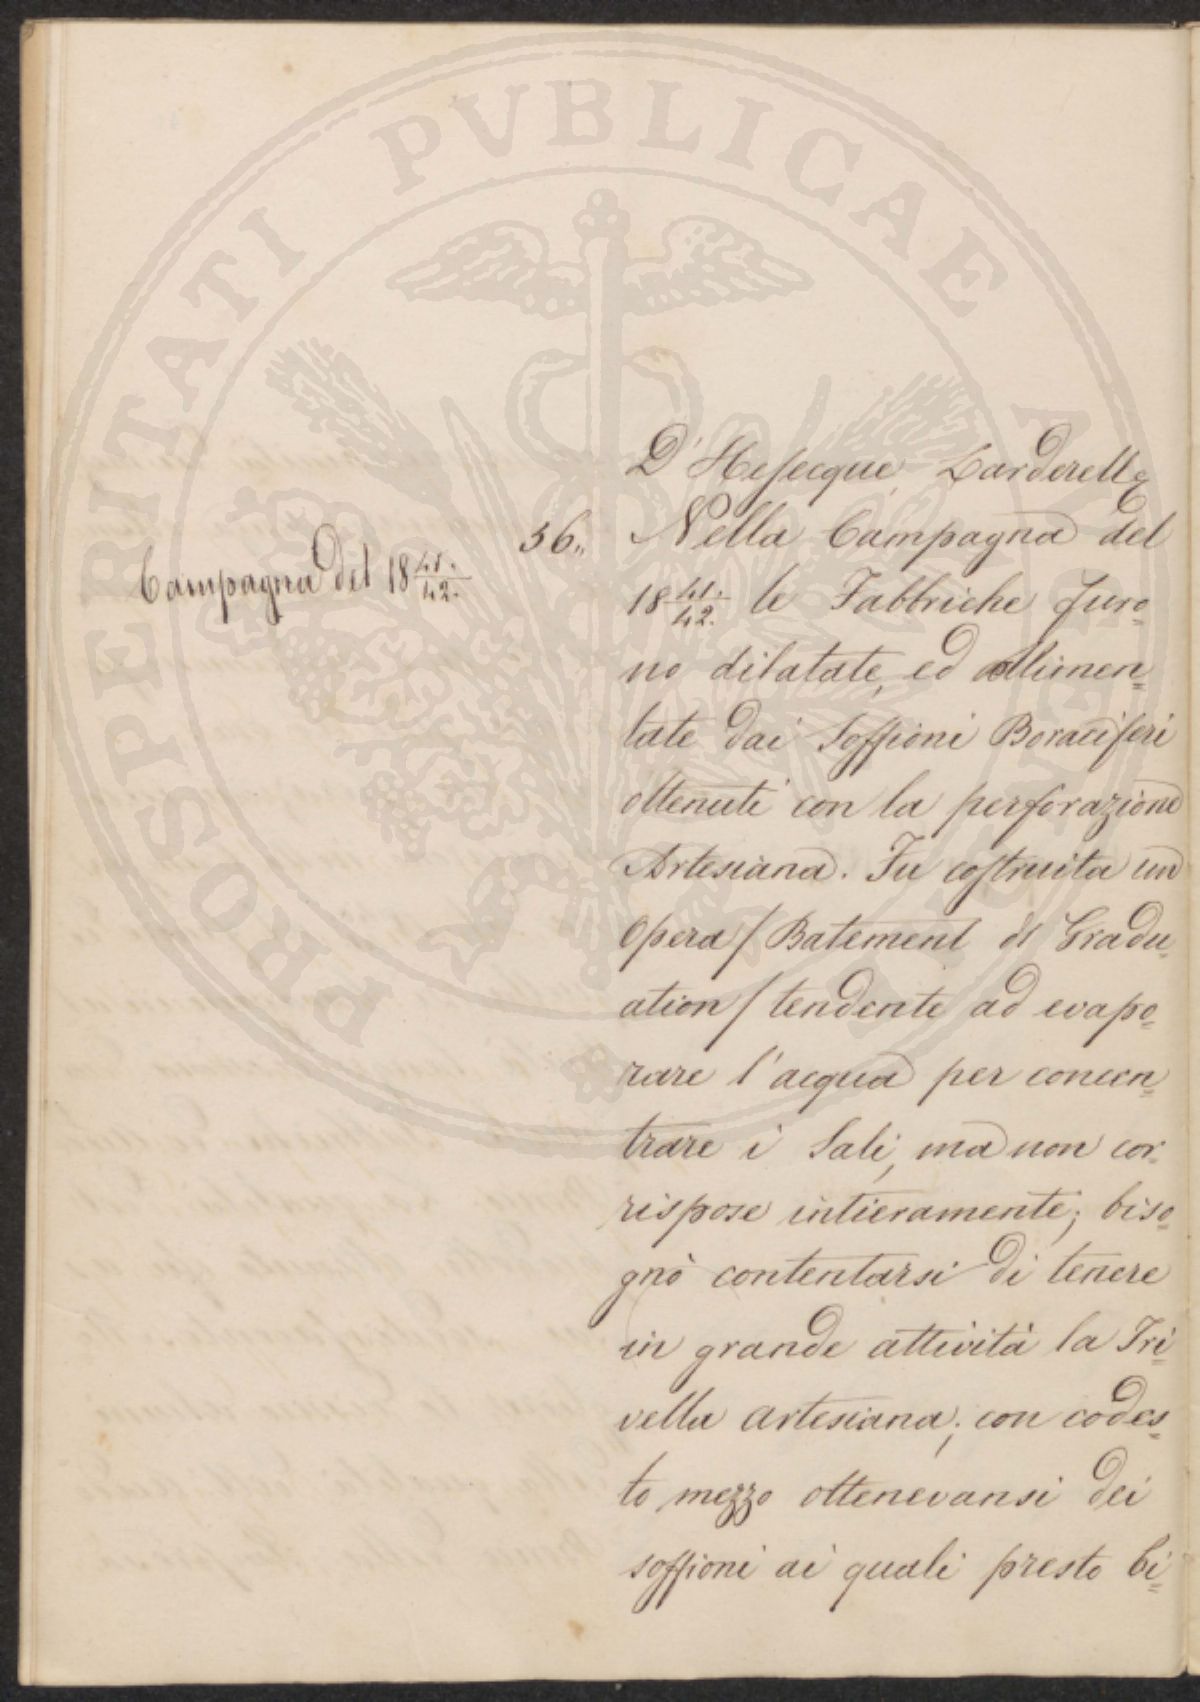 PROSPERITATI PVBLICAE AVGENDAE
D'Hesecque, Larderell &
Campagna del 18 41./42.
36.,, Nella Campagna del
18 41./42. le Fabbriche furo=
no dilatate, ed allimen=
tate dai Soffioni Boraciferi
ottenuti con la perforazione
Artesiana. Fu costruita un
Opera / Batement di Gradu=
ation / tendente ad evapo=
rare l'acqua per concen=
trare i Sali, ma non cor=
rispose intieramente; biso=
gnò contentarsi di tenere
in grande attività la Tri=
vella artesiana; con codes=
to mezzo ottenevansi dei
soffioni ai quali presto bi=